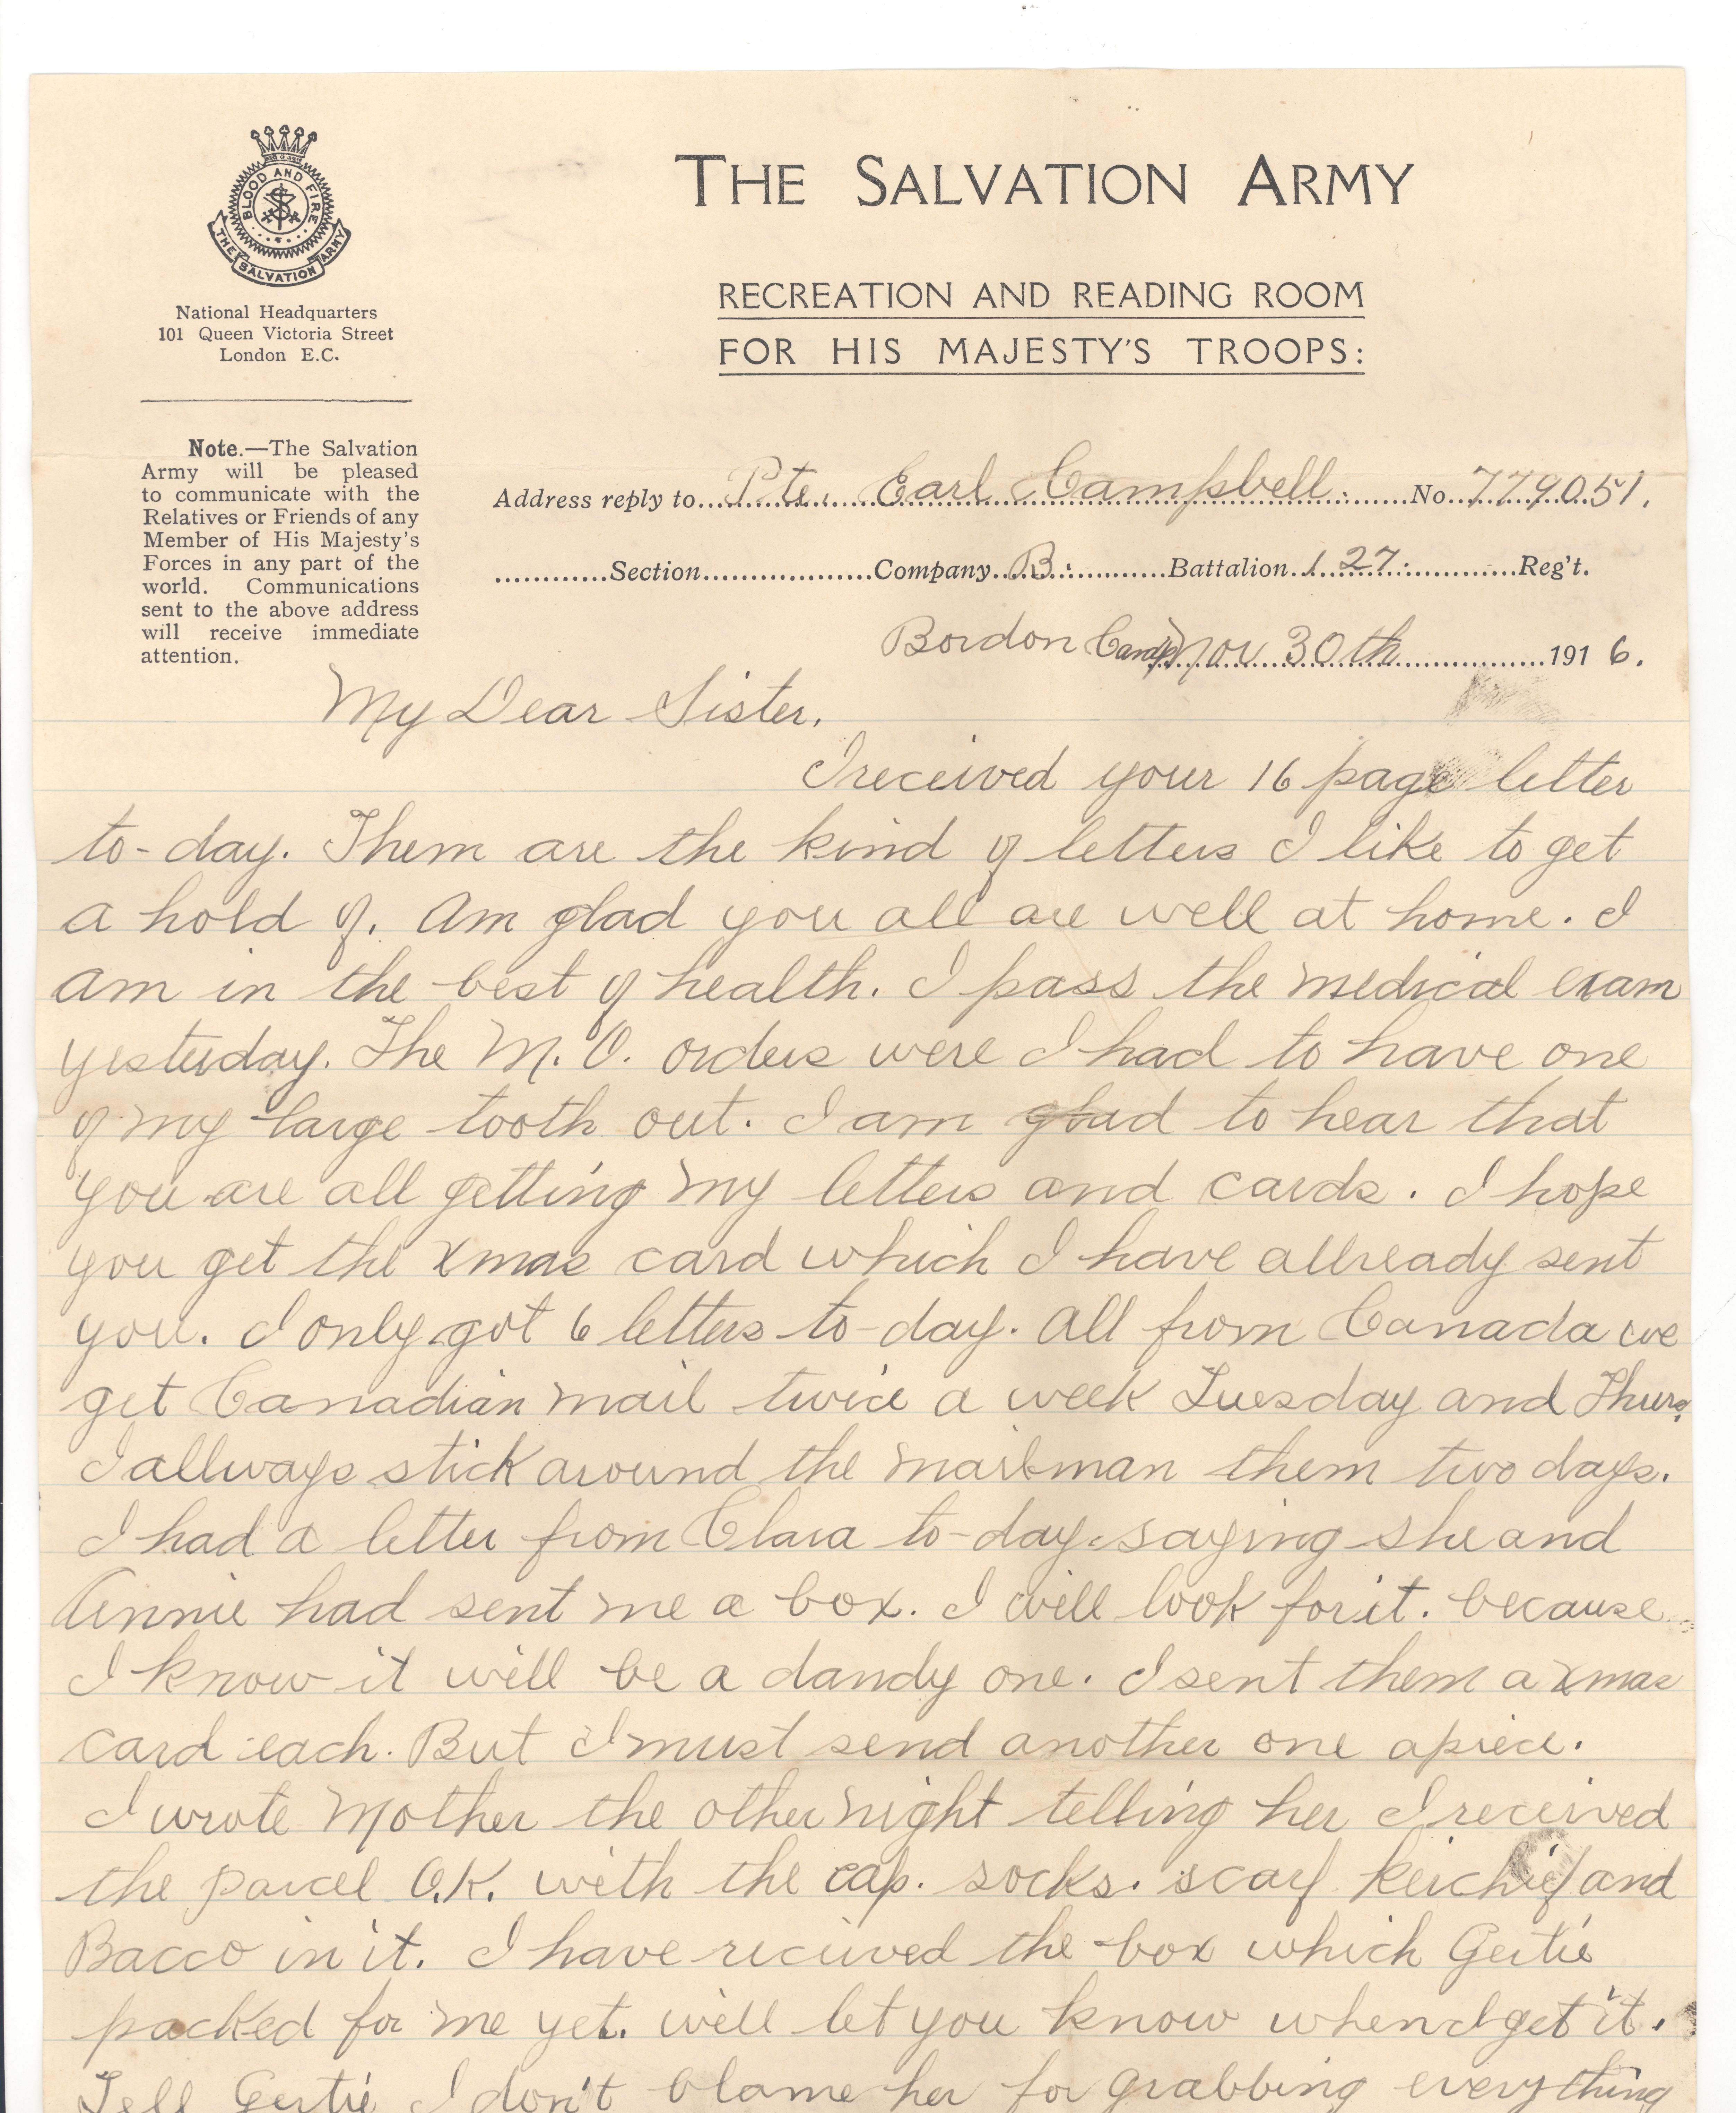 BLOOD AND FIRE
THE SALVATION ARMY
National Headquarters
101 Queen Victoria Street
London E.C.
Note.—The Salvation
Army will be pleased
to communicate with the
Relatives or Friends of any
Member of His Majesty's
Forces in any part of the
world. Communications
sent to the above address
will receive immediate
attention.
THE SALVATION ARMY
RECREATION AND READING ROOM
FOR HIS MAJESTY'S TROOPS:
Address reply to Pte. Earl Campbell. No. 779051.
Section Company B. Battalion 127. Reg't.
Bordon Camp Nov 30th 1916.
My Dear Sister,
I received your 16 page letter
to-day. Them are the kind of letters I like to get
a hold of. Am glad you all are well at home. I
am in the best of health. I pass the medical exam
yesterday. The M.O. orders were I had to have one
of my large tooth out. I am glad to hear that
you are all getting my letters and cards. I hope
you get the Xmas card which I have allready sent
you. I only got 6 letters to-day. All from Canada we
get Canadian mail twice a week Tuesday and Thurs.
I allways stick around the mailman them two days.
I had a letter from Clara to-day saying she and
Annie had sent me a box. I will look for it. because
I know it will be a dandy one. I sent them a Xmas
card each. But I must send another one apiece.
I wrote Mother the other night telling her I received
the parcel O.K. with the cap. socks. scarf kerchief and
Bacco in it. I have recieved the box which Gertie
packed for me yet. will let you know when I get it.
Tell Gertie I don't blame her for grabbing everything